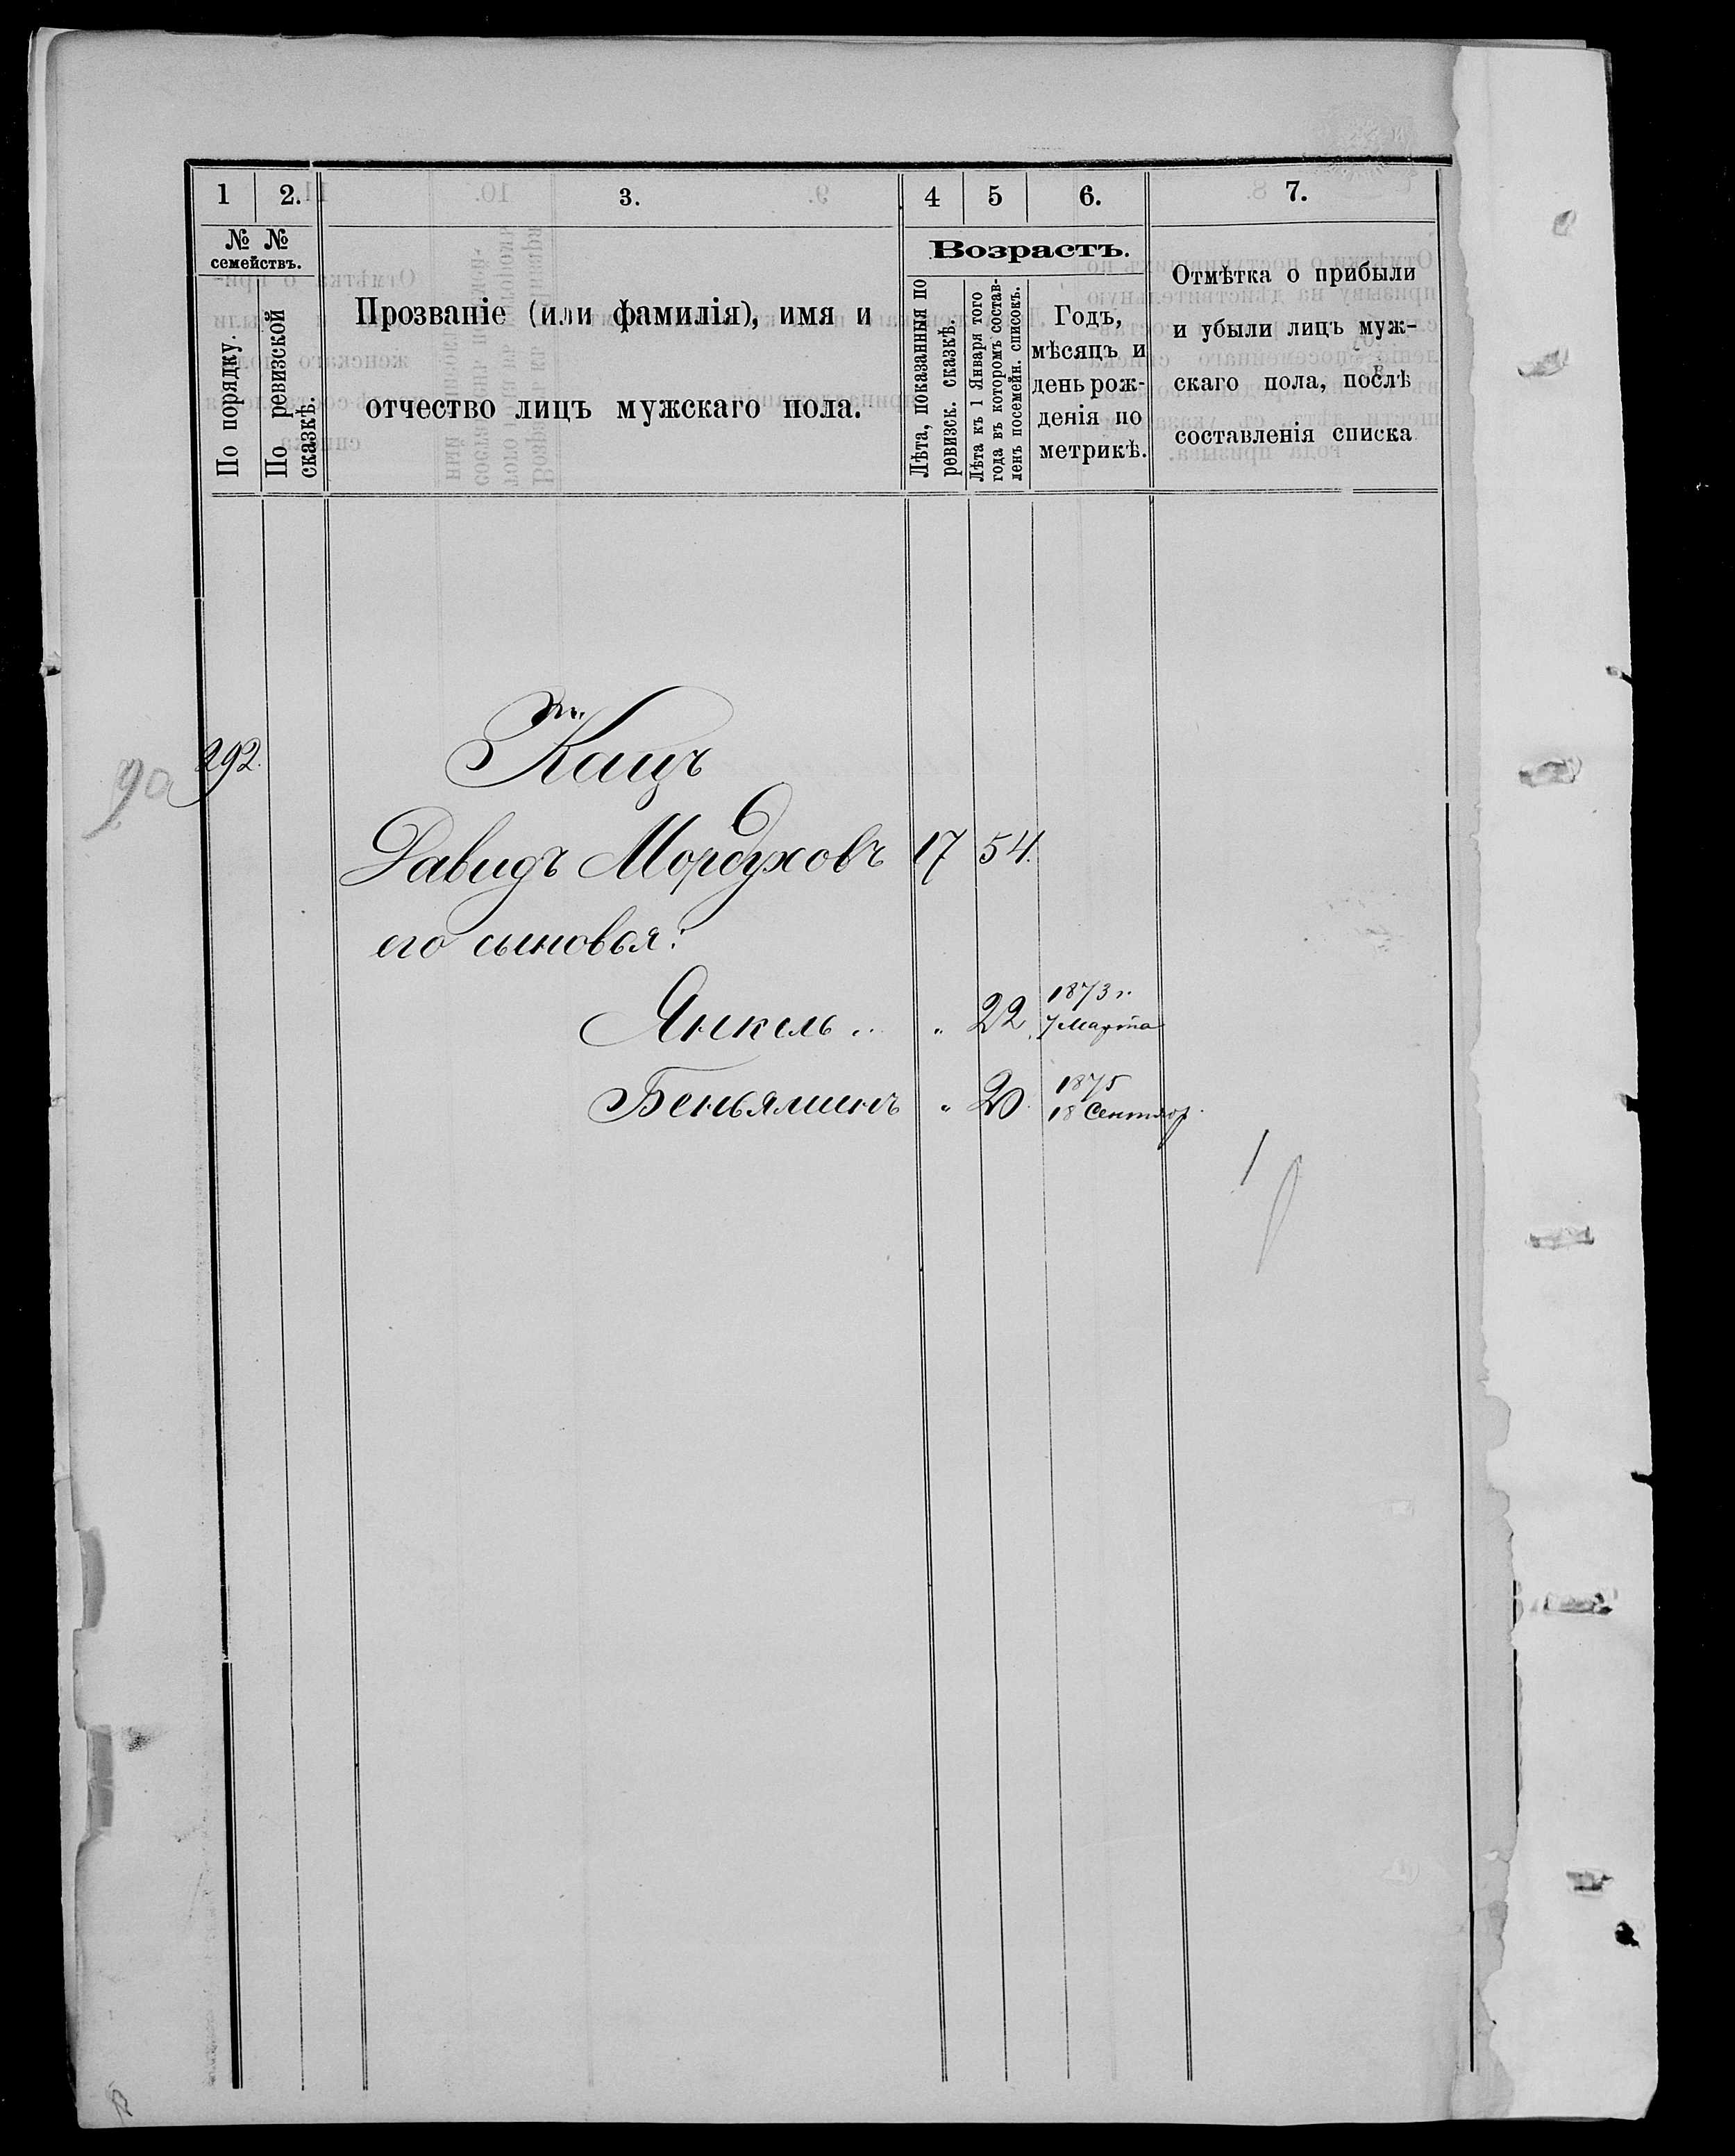 1 2. 3. 4 5 6. 7.
№ №
семействъ.
По порядку.
По ревизской
сказкѣ.
Прозваніе (или фамилія), имя и
отчество лицъ мужскаго пола.
Возрастъ.
Лѣта, показанныя по
ревизск. сказкѣ.
Лѣта къ 1 Января того
года въ которомъ состав-
ленъ посемейн. списокъ.
Годъ,
мѣсяцъ и
день рож-
денія по
метрикѣ.
Отмѣтка о прибыли
и убыли лицъ муж-
скаго пола, послѣ
составленія списка
292. Кацъ
Давидъ Мордуховъ 17 54.
его сыновья:
Янкель „ 22 1873 г.
7 Марта
Беньяминъ „ 20. 1875
18 Сентябр.